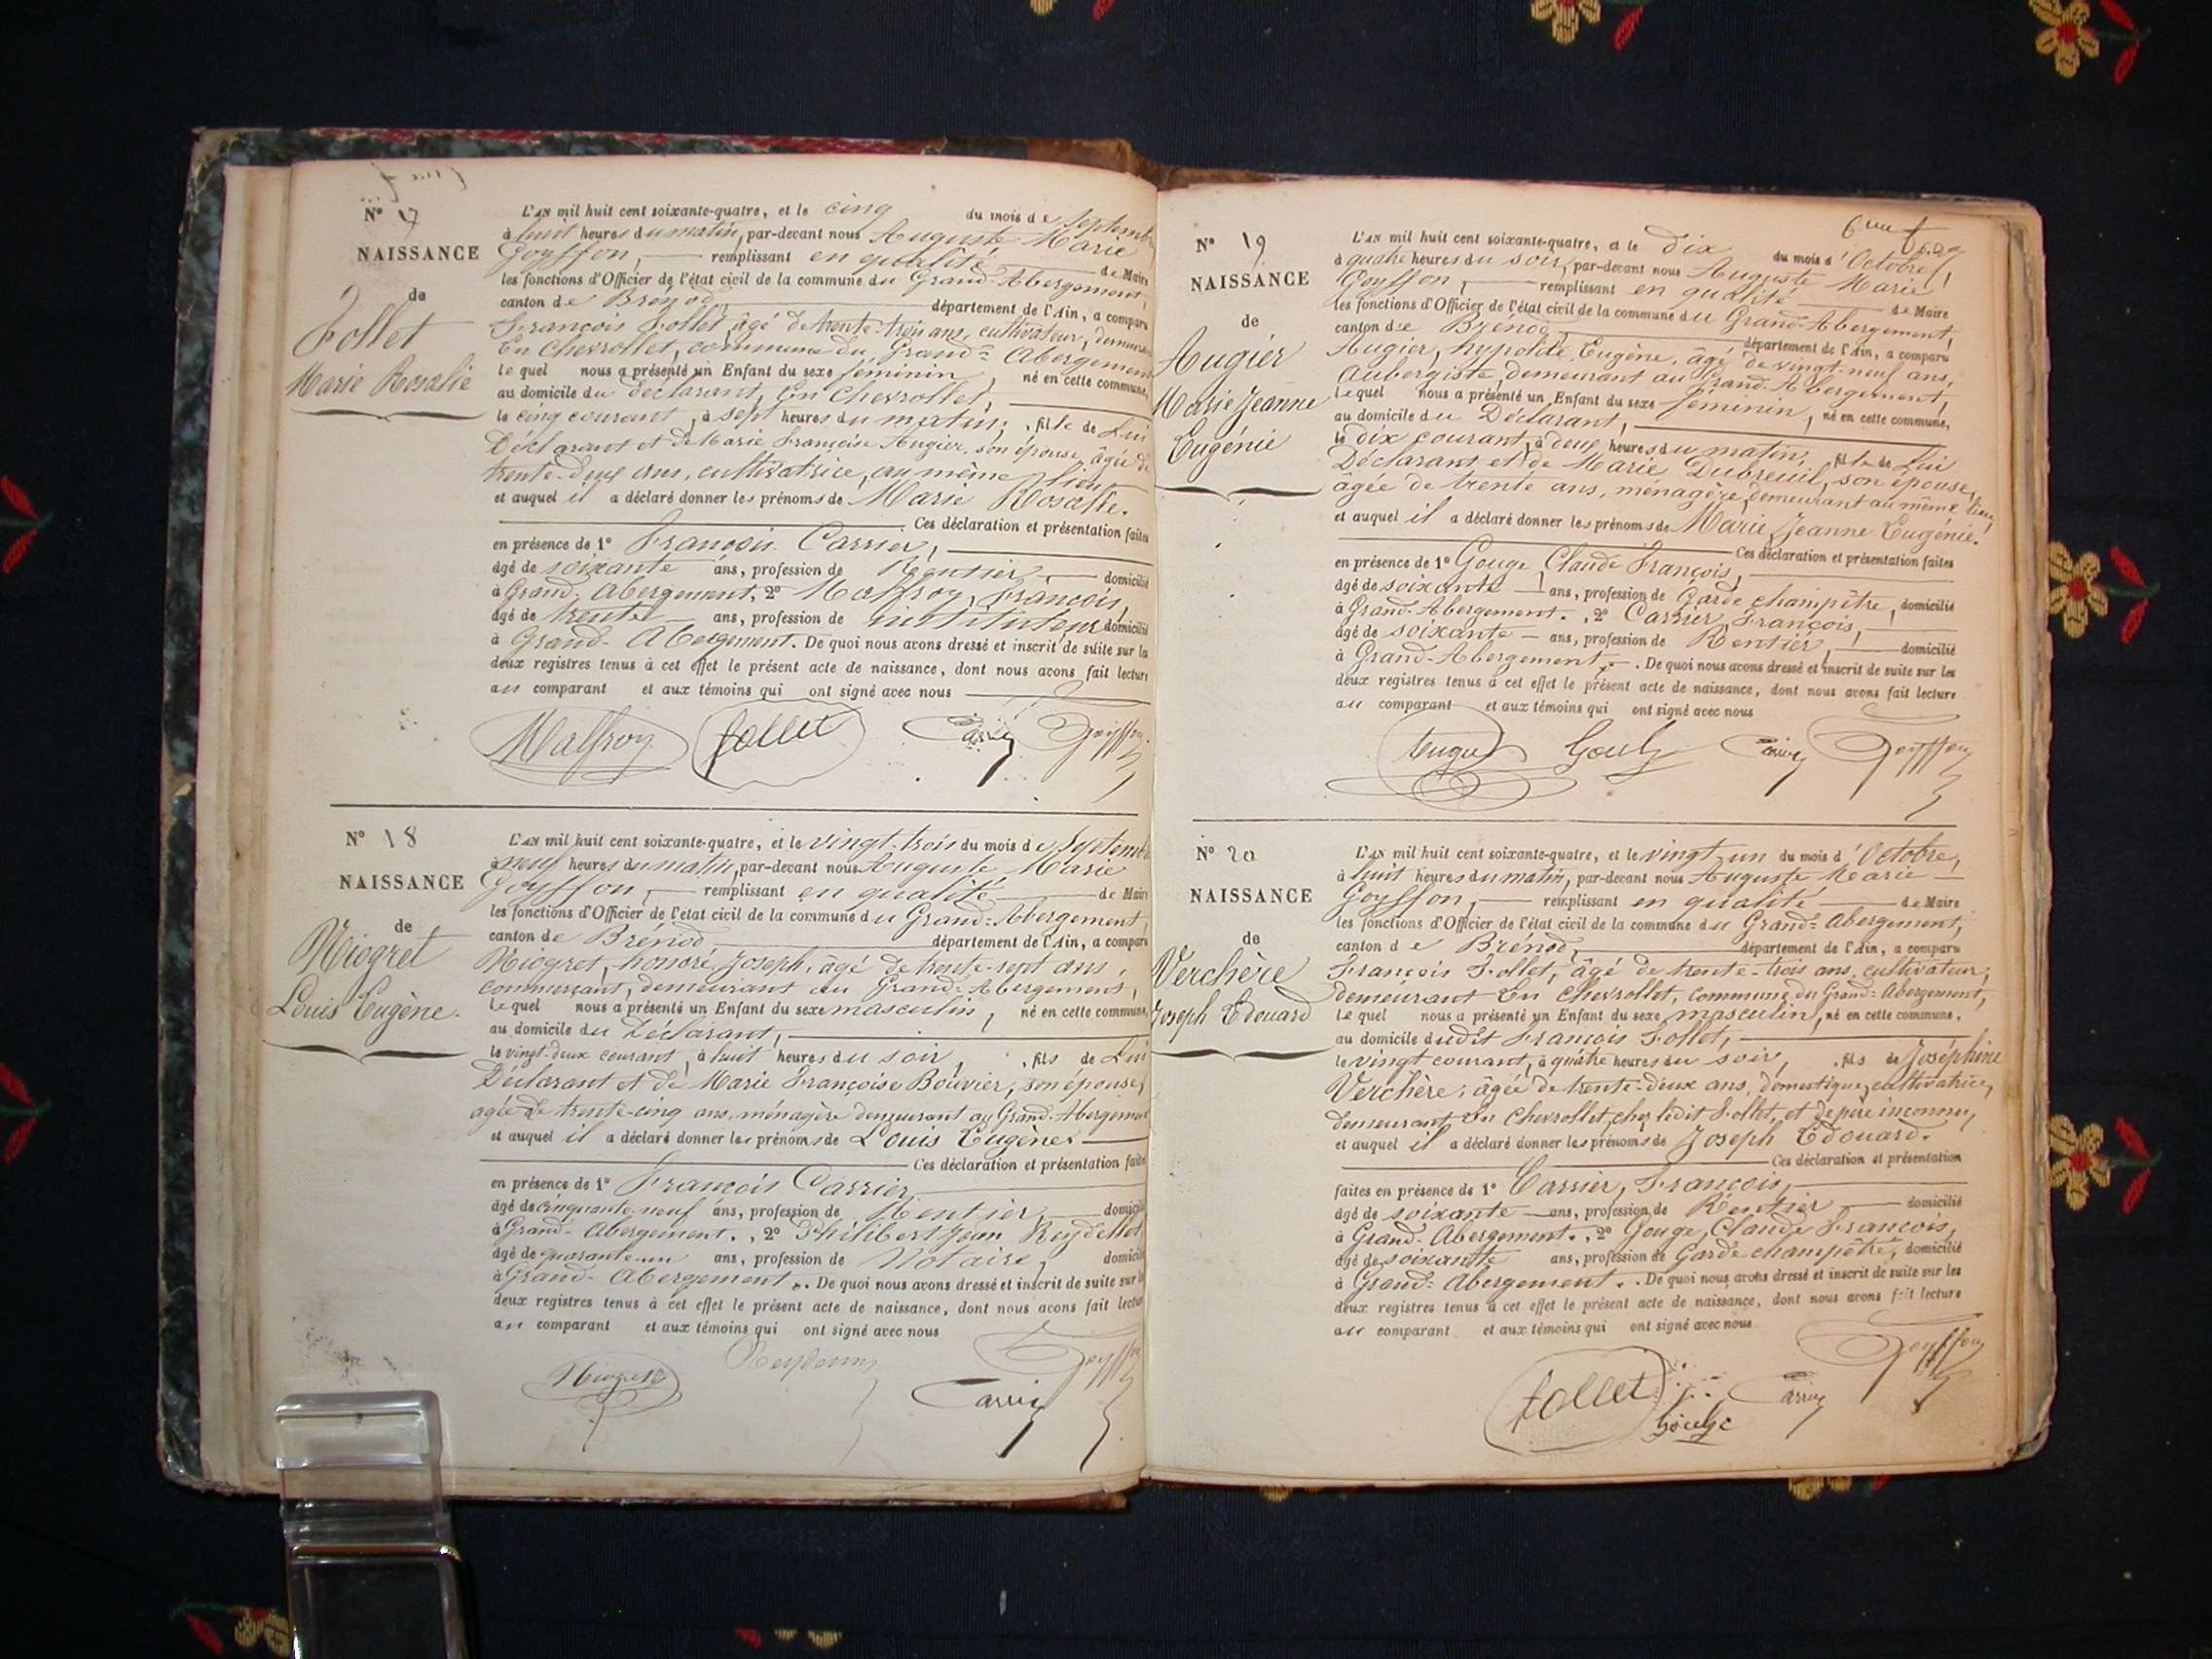 N° 17
NAISSANCE
de
Follet
Marie Rosalie
L'AN mil huit cent soixante-quatre, et le cinq du mois de Septembre
à huit heures du matin, par-devant nous Auguste Marie
Goyffon, remplissant en qualité de Maire
les fonctions d'Officier de l'état civil de la commune du Grand-Abergement,
canton de Brénod, département de l'Ain, a comparu
François Follet, âgé de trente-trois ans, cultivateur, demeurant
En Chevrollet, commune du Grand-Abergement
lequel nous a présenté un Enfant du sexe féminin, né en cette commune,
au domicile du déclarant, En Chevrollet,
le cinq courant, à sept heures du matin, fille de Lui
Déclarant et de Marie Françoise Augier, son épouse, âgée de
trente-deux ans, cultivatrice, au même lieu
et auquel il a déclaré donner les prénoms de Marie Rosalie.
Ces déclaration et présentation faites
en présence de 1° François Carrier,
âgé de soixante ans, profession de Rentier, domicilié
à Grand-Abergement, 2° Malfroy, François,
âgé de trente ans, profession de instituteur domicilié
à Grand-Abergement. De quoi nous avons dressé et inscrit de suite sur les
deux registres tenus à cet effet le présent acte de naissance, dont nous avons fait lecture
au comparant et aux témoins qui ont signé avec nous
Malfroy follet Carrier Goyffon
N° 18
NAISSANCE
de
Niogret
Louis Eugène.
L'AN mil huit cent soixante-quatre, et le vingt-trois du mois de Septembre
à neuf heures du matin, par-devant nous Auguste Marie
Goyffon, remplissant en qualité de Maire
les fonctions d'Officier de l'état civil de la commune du Grand-Abergement,
canton de Brénod, département de l'Ain, a comparu
Niogret, honoré Joseph, âgé de trente-sept ans,
commerçant, demeurant au Grand-Abergement,
lequel nous a présenté un Enfant du sexe masculin, né en cette commune,
au domicile du Déclarant,
le vingt-deux courant, à huit heures du soir, fils de Lui
Déclarant et de Marie Françoise Bouvier, son épouse,
agée de trente-cinq ans, ménagère demeurant au Grand-Abergement
et auquel il a déclaré donner les prénoms de Louis Eugène.
Ces déclaration et présentation faites
en présence de 1° François Carrier,
âgé de cinquante-neuf ans, profession de Rentier, domicilié
à Grand-Abergement., 2° Philibert Jean Reydellet
âgé de quarante-un ans, profession de Notaire, domicilié
à Grand-Abergement. De quoi nous avons dressé et inscrit de suite sur les
deux registres tenus à cet effet le présent acte de naissance, dont nous avons fait lecture
au comparant et aux témoins qui ont signé avec nous
Niogret Carrier Goyffon
N° 19
NAISSANCE
de
Augier
Marie Jeanne
Eugénie
L'AN mil huit cent soixante-quatre, et le dix du mois d'Octobre,
à quatre heures du soir, par-devant nous Auguste Marie
Goyffon, remplissant en qualité de Maire
les fonctions d'Officier de l'état civil de la commune du Grand-Abergement,
canton de Brénod, département de l'Ain, a comparu
Augier, hypolite Eugène, âgé de vingt-neuf ans,
Aubergiste, demeurant au Grand-Abergement,
lequel nous a présenté un Enfant du sexe féminin, né en cette commune,
au domicile du Déclarant,
le dix courant, à deux heures du matin, fille de Lui
Déclarant et de Marie Dubreuil, son épouse,
agée de trente ans, ménagère demeurant au même lieu,
et auquel il a déclaré donner les prénoms de Marie Jeanne Eugénie.
Ces déclaration et présentation faites
en présence de 1° Gouge, Claude François,
âgé de soixante ans, profession de Garde champêtre, domicilié
à Grand-Abergement., 2° Carrier, François,
âgé de soixante ans, profession de Rentier, domicilié
à Grand-Abergement. De quoi nous avons dressé et inscrit de suite sur les
deux registres tenus à cet effet le présent acte de naissance, dont nous avons fait lecture
au comparant et aux témoins qui ont signé avec nous
Carrier Goyffon
N° 20
NAISSANCE
de
Verchère
Joseph Edouard
L'AN mil huit cent soixante-quatre, et le vingt-un du mois d'Octobre,
à huit heures du matin, par-devant nous Auguste Marie
Goyffon, remplissant en qualité de Maire
les fonctions d'Officier de l'état civil de la commune du Grand-Abergement,
canton de Brénod, département de l'Ain, a comparu
François Follet, âgé de trente-trois ans, cultivateur,
demeurant En Chevrollet, commune du Grand-Abergement,
Lequel nous a présenté un Enfant du sexe masculin, né en cette commune,
au domicile dudit François Follet,
le vingt courant, à quatre heures du soir, fils de Joséphine
Verchère, âgée de trente-deux ans, domestique, cultivatrice,
demeurant En Chevrollet chez ledit Follet, et de père inconnu,
et auquel il a déclaré donner les prénoms de Joseph Edouard.
Ces déclaration et présentation
faites en présence de 1° Carrier, François,
âgé de soixante ans, profession de Rentier domicilié
à Grand-Abergement., 2° Gouge, Claude François,
âgé de soixante ans, profession de Garde champêtre, domicilié
à Grand-Abergement. De quoi nous avons dressé et inscrit de suite sur les
deux registres tenus à cet effet le présent acte de naissance, dont nous avons fait lecture
au comparant et aux témoins qui ont signé avec nous
follet Carrier Goyffon